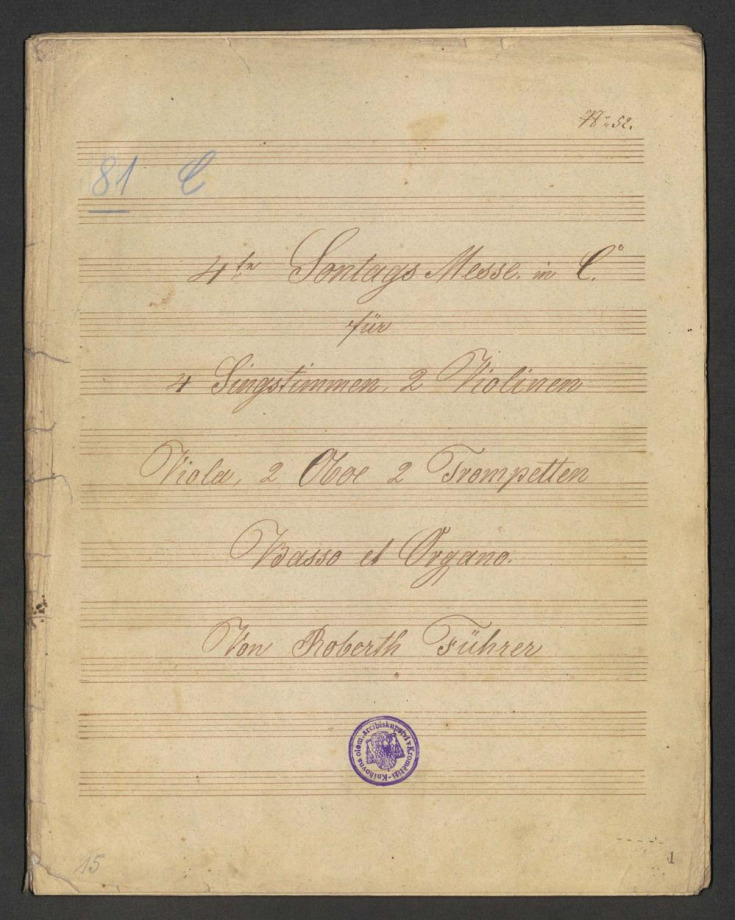 № 52.
81 C
4te Sontags Messe. in C.
für
4 Singstimmen, 2 Violinen
Viola, 2 Oboe 2 Trompetten
Basso et Organo.
Von Roberth Führer
Knihovna olom. arcibiskupství v Kroměříži
15
1